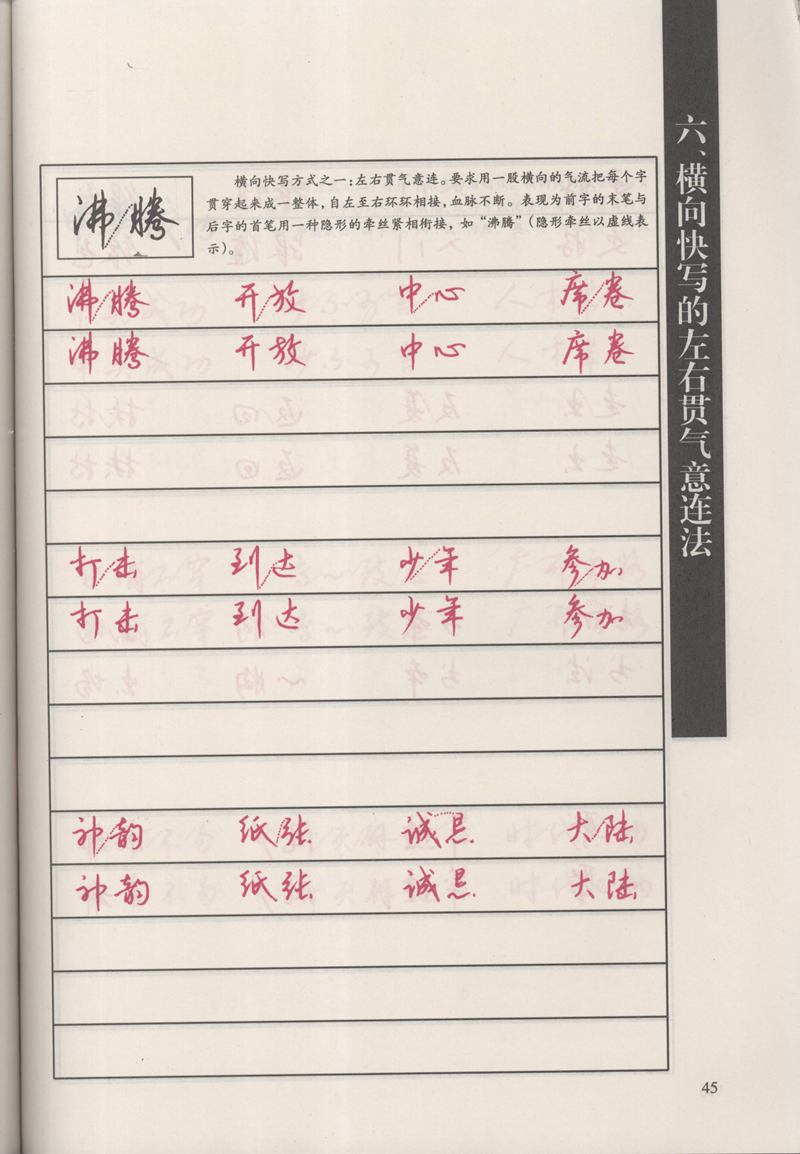 六、横向快写的左右贯气意连法
沸腾
横向快写方式之一：左右贯气意连。要求用一股横向的气流把每个字
贯穿起来成一整体，自左至右环环相接，血脉不断。表现为前字的末笔与
后字的首笔用一种隐形的牵丝紧相衔接，如“沸腾”（隐形牵丝以虚线表
示）。
沸腾 开放 中心 席卷
沸腾 开放 中心 席卷
打击 到达 少年 参加
打击 到达 少年 参加
神韵 纸张 诚恳 大陆
神韵 纸张 诚恳 大陆
45